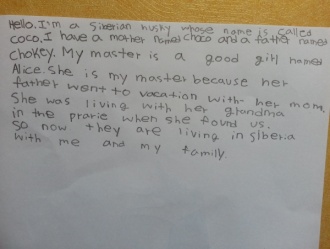 Hello. I'm a Siberian husky whose name is called
coco. I have a mother named choco and a father named
chokey. My master is a good girl named
Alice. She is my master because her
father went to vacation with her mom.
She was living with her grandma
in the prarie when she found us.
So now they are living in Siberia
with me and my family.